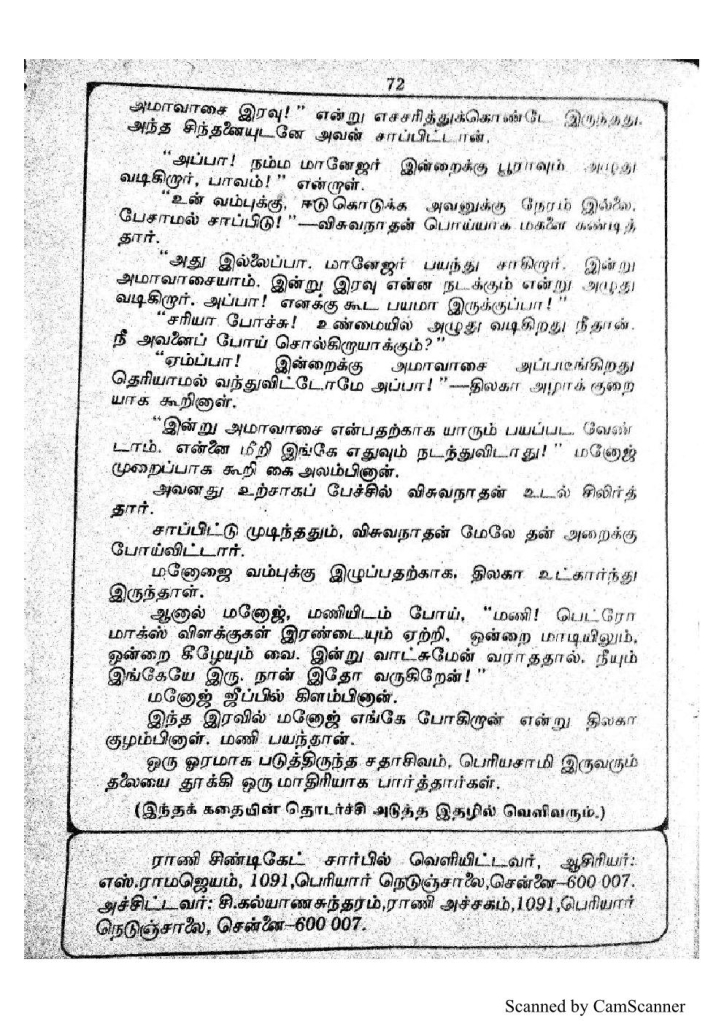 72
அமாவாசை இரவு!" என்று எச்சரித்துக்கொண்டே இருந்தது.
அந்த சிந்தனையுடனே அவன் சாப்பிட்டான்.
"அப்பா! நம்ம மானேஜர் இன்றைக்கு பூராவும் அழுது
வடிகிறார், பாவம்!" என்றாள்.
"உன் வம்புக்கு, ஈடு கொடுக்க அவனுக்கு நேரம் இல்லை.
பேசாமல் சாப்பிடு!"—விசுவநாதன் பொய்யாக மகளை கண்டித்
தார்.
"அது இல்லைப்பா. மானேஜர் பயந்து சாகிறார். இன்று
அமாவாசையாம். இன்று இரவு என்ன நடக்கும் என்று அழுது
வடிகிறார். அப்பா! எனக்கு கூட பயமா இருக்குப்பா!"
"சரியா போச்சு! உண்மையில் அழுது வடிகிறது நீதான்.
நீ அவனைப் போய் சொல்கிறாயாக்கும்?"
"ஏம்ப்பா! இன்றைக்கு அமாவாசை அப்படீங்கிறது
தெரியாமல் வந்துவிட்டோமே அப்பா!"—திலகா அழாக் குறை
யாக கூறினாள்.
"இன்று அமாவாசை என்பதற்காக யாரும் பயப்பட வேண்
டாம். என்னை மீறி இங்கே எதுவும் நடந்துவிடாது!" மனோஜ்
முறைப்பாக கூறி கை அலம்பினான்.
அவனது உற்சாகப் பேச்சில் விசுவநாதன் உடல் சிலிர்த்
தார்.
சாப்பிட்டு முடிந்ததும், விசுவநாதன் மேலே தன் அறைக்கு
போய்விட்டார்.
மனோஜை வம்புக்கு இழுப்பதற்காக, திலகா உட்கார்ந்து
இருந்தாள்.
ஆனால் மனோஜ், மணியிடம் போய், "மணி! பெட்ரோ
மாக்ஸ் விளக்குகள் இரண்டையும் ஏற்றி, ஒன்றை மாடியிலும்,
ஒன்றை கீழேயும் வை. இன்று வாட்சுமேன் வராததால், நீயும்
இங்கேயே இரு. நான் இதோ வருகிறேன்!"
மனோஜ் ஜீப்பில் கிளம்பினான்.
இந்த இரவில் மனோஜ் எங்கே போகிறான் என்று திலகா
குழம்பினாள். மணி பயந்தான்.
ஒரு ஓரமாக படுத்திருந்த சதாசிவம், பெரியசாமி இருவரும்
தலையை தூக்கி ஒரு மாதிரியாக பார்த்தார்கள்.
(இந்தக் கதையின் தொடர்ச்சி அடுத்த இதழில் வெளிவரும்.)
ராணி சிண்டிகேட் சார்பில் வெளியிட்டவர், ஆசிரியர்:
எஸ்.ராமஜெயம், 1091,பெரியார் நெடுஞ்சாலை,சென்னை–600 007.
அச்சிட்டவர்: சி.கல்யாணசுந்தரம்,ராணி அச்சகம்,1091,பெரியார்
நெடுஞ்சாலை, சென்னை–600 007.
Scanned by CamScanner